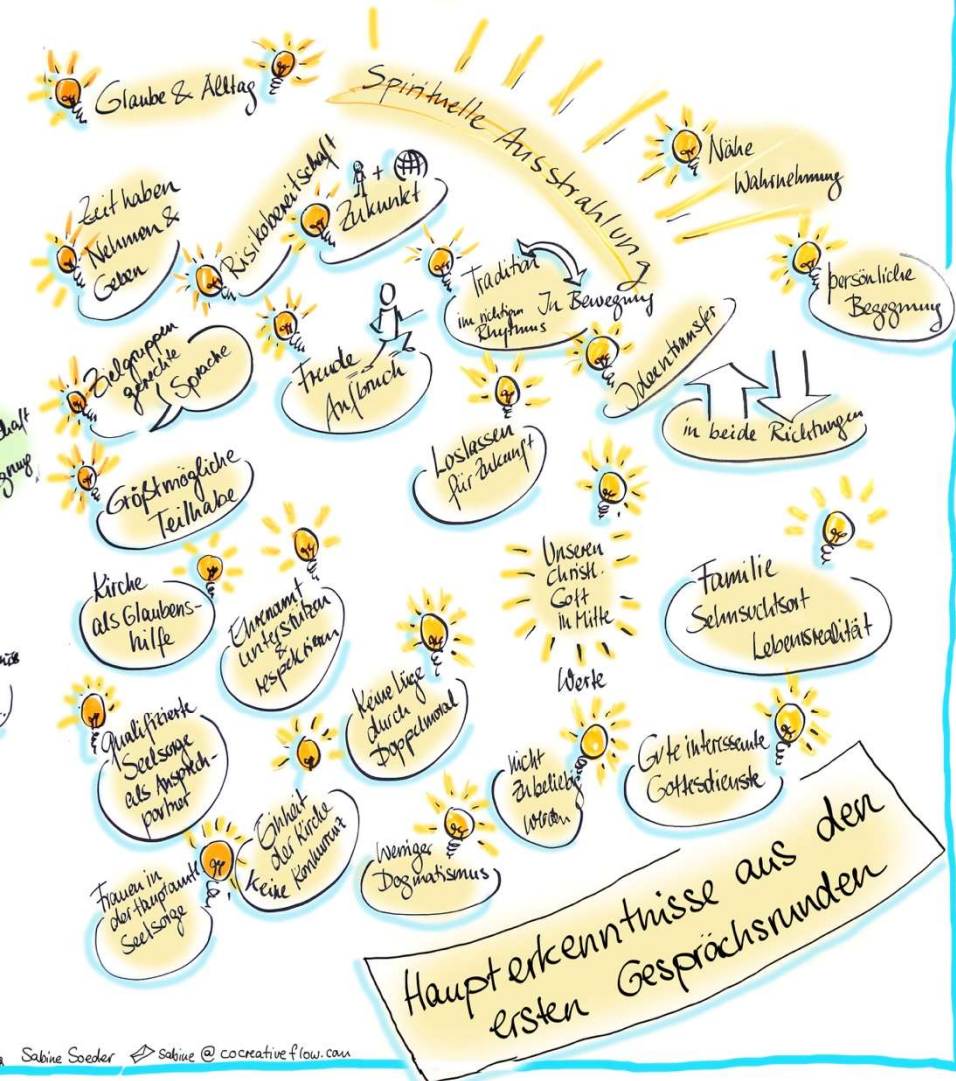 Glaube & Alltag
Spirituelle Ausstrahlung
Nähe
Wahrnehmung
Zeit haben
Nehmen &
Geben
Risikobereitschaft
+
Zukunkt
Tradition
im richtigen
Rhytmus
In Bewegung
persönliche
Begegnung
Zielgruppen
gerechte
Sprache
Freude
Aufbruch
Ideentransfer
in beide Richtungen
Loslassen
für Zukunft
Größtmögliche
Teilhabe
Kirche
als Glaubens-
hilfe
Ehrenamt
unterstützen
&
respektieren
Unseren
Christl.
Gott
in Mitte
Werte
Familie
Sehnsuchtsort
Lebensrealität
Keine Lüge
durch
Doppelmoral
qualifizierte
Seelsorge
als Ansprech-
partner
Einheit
der Kirche
keine Konkurrenz
nicht
zu beliebig
werden
Gute interessante
Gottesdienste
Weniger
Dogmatismus
Frauen in
der Hauptamtl.
Seelsorge
Haupterkenntnisse aus den
ersten Gesprächsrunden
Sabine Soeder sabine@cocreativeflow.com